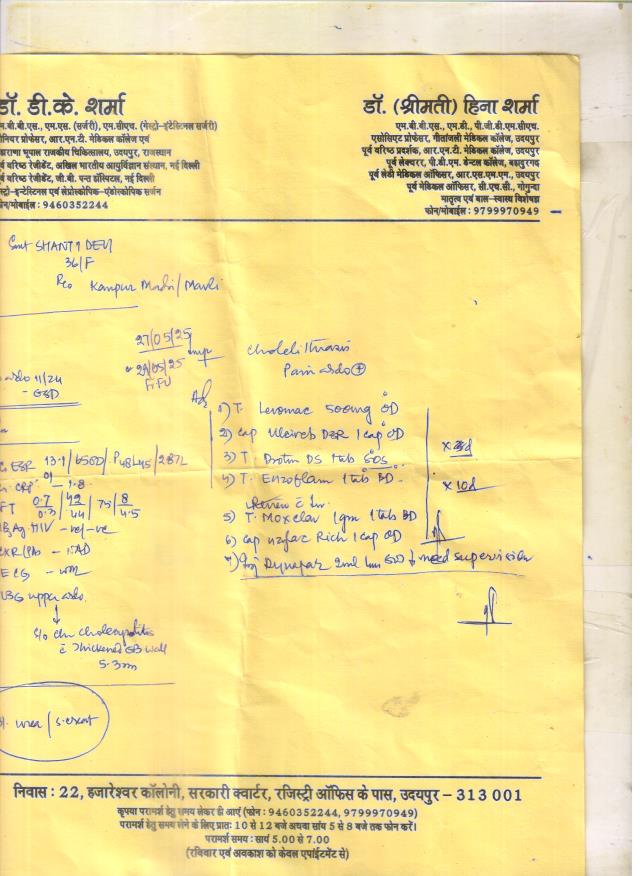 डॉ. डी.के. शर्मा
म.बी.बी.एस., एम.एस. (सर्जरी), एम.सीएच. (गेस्ट्रो-इंटेस्टिनल सर्जरी)
नियर प्रोफेसर, आर.एन.टी. मेडिकल कॉलेज एवं
हाराणा भूपाल राजकीय चिकित्सालय, उदयपुर, राजस्थान
र्व वरिष्ठ रेजीडेंट, अखिल भारतीय आयुर्विज्ञान संस्थान, नई दिल्ली
र्व वरिष्ठ रेजीडेंट, जी.बी. पन्त हॉस्पिटल, नई दिल्ली
स्ट्रो-इन्टेस्टिनल एवं लेप्रोस्कोपिक-एंडोस्कोपिक सर्जन
ोन/मोबाईल : 9460352244
डॉ. (श्रीमती) हिना शर्मा
एम.बी.बी.एस., एम.डी., पी.जी.डी.एम.सीएच.
एसोसिएट प्रोफेसर, गीतांजली मेडिकल कॉलेज, उदयपुर
पूर्व वरिष्ठ प्रदर्शक, आर.एन.टी. मेडिकल कॉलेज, उदयपुर
पूर्व लेक्चरर, पी.डी.एम. डेन्टल कॉलेज, बहादुरगढ़
पूर्व लेडी मेडिकल ऑफिसर, आर.एस.एम.एम., उदयपुर
पूर्व मेडिकल ऑफिसर, सी.एच.सी., गोगुन्दा
मातृत्व एवं बाल-स्वास्थ्य विशेषज्ञ
फोन/मोबाईल : 9799970949
Smt SHANTI DEVI
36/F
R/o Kanpur Madri/
27/05/25
Cholelithiasis
29/05/25
Pain abdo (+)
11/24
- GBD
Adv
1) T. Levomac 500mg OD
2) Cap DSR 1 cap OD
3) T. Drotin DS 1 tab SOS
4) T. Enzoflam 1 tab BD
x 10d
Review c
5) T. Moxclav 1gm 1 tab BD
6) Cap Rich 1 cap OD
7) Inj Dynapar 2ml supervision
ESR 13.1/6500/P48L45/287L
CRP - 1.8
FT 0.7/0.3 / 42/44 / 75 / 8/4.5
Ag. HIV -ve/-ve
CXR(PA) - NAD
ECG -
USG upper abdo.
↓
s/o chr cholecystitis
c thickened GB wall
5.3mm
urea / s.creat
निवास : 22, हजारेश्वर कॉलोनी, सरकारी क्वार्टर, रजिस्ट्री ऑफिस के पास, उदयपुर – 313 001
कृपया परामर्श हेतु समय लेकर ही आएं (फोन : 9460352244, 9799970949)
परामर्श हेतु समय लेने के लिए प्रातः 10 से 12 बजे अथवा सांय 5 से 8 बजे तक फोन करें।
परामर्श समय : सायं 5.00 से 7.00
(रविवार एवं अवकाश को केवल एपाईंटमेंट से)